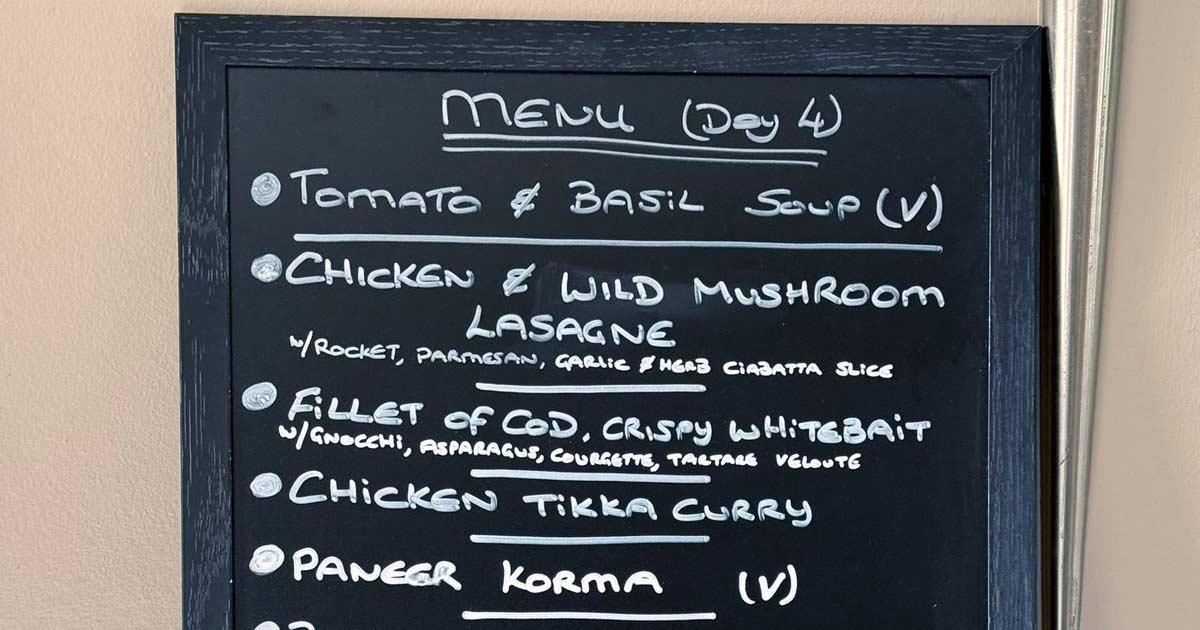 MENU (Day 4)
TOMATO & BASIL SOUP (V)
CHICKEN & WILD MUSHROOM
LASAGNE
w/ROCKET, PARMESAN, GARLIC & HERB CIABATTA SLICE
FILLET OF COD, CRISPY WHITEBAIT
w/GNOCCHI, ASPARAGUS, COURGETTE, TARTARE VELOUTE
CHICKEN TIKKA CURRY
PANEER KORMA (V)